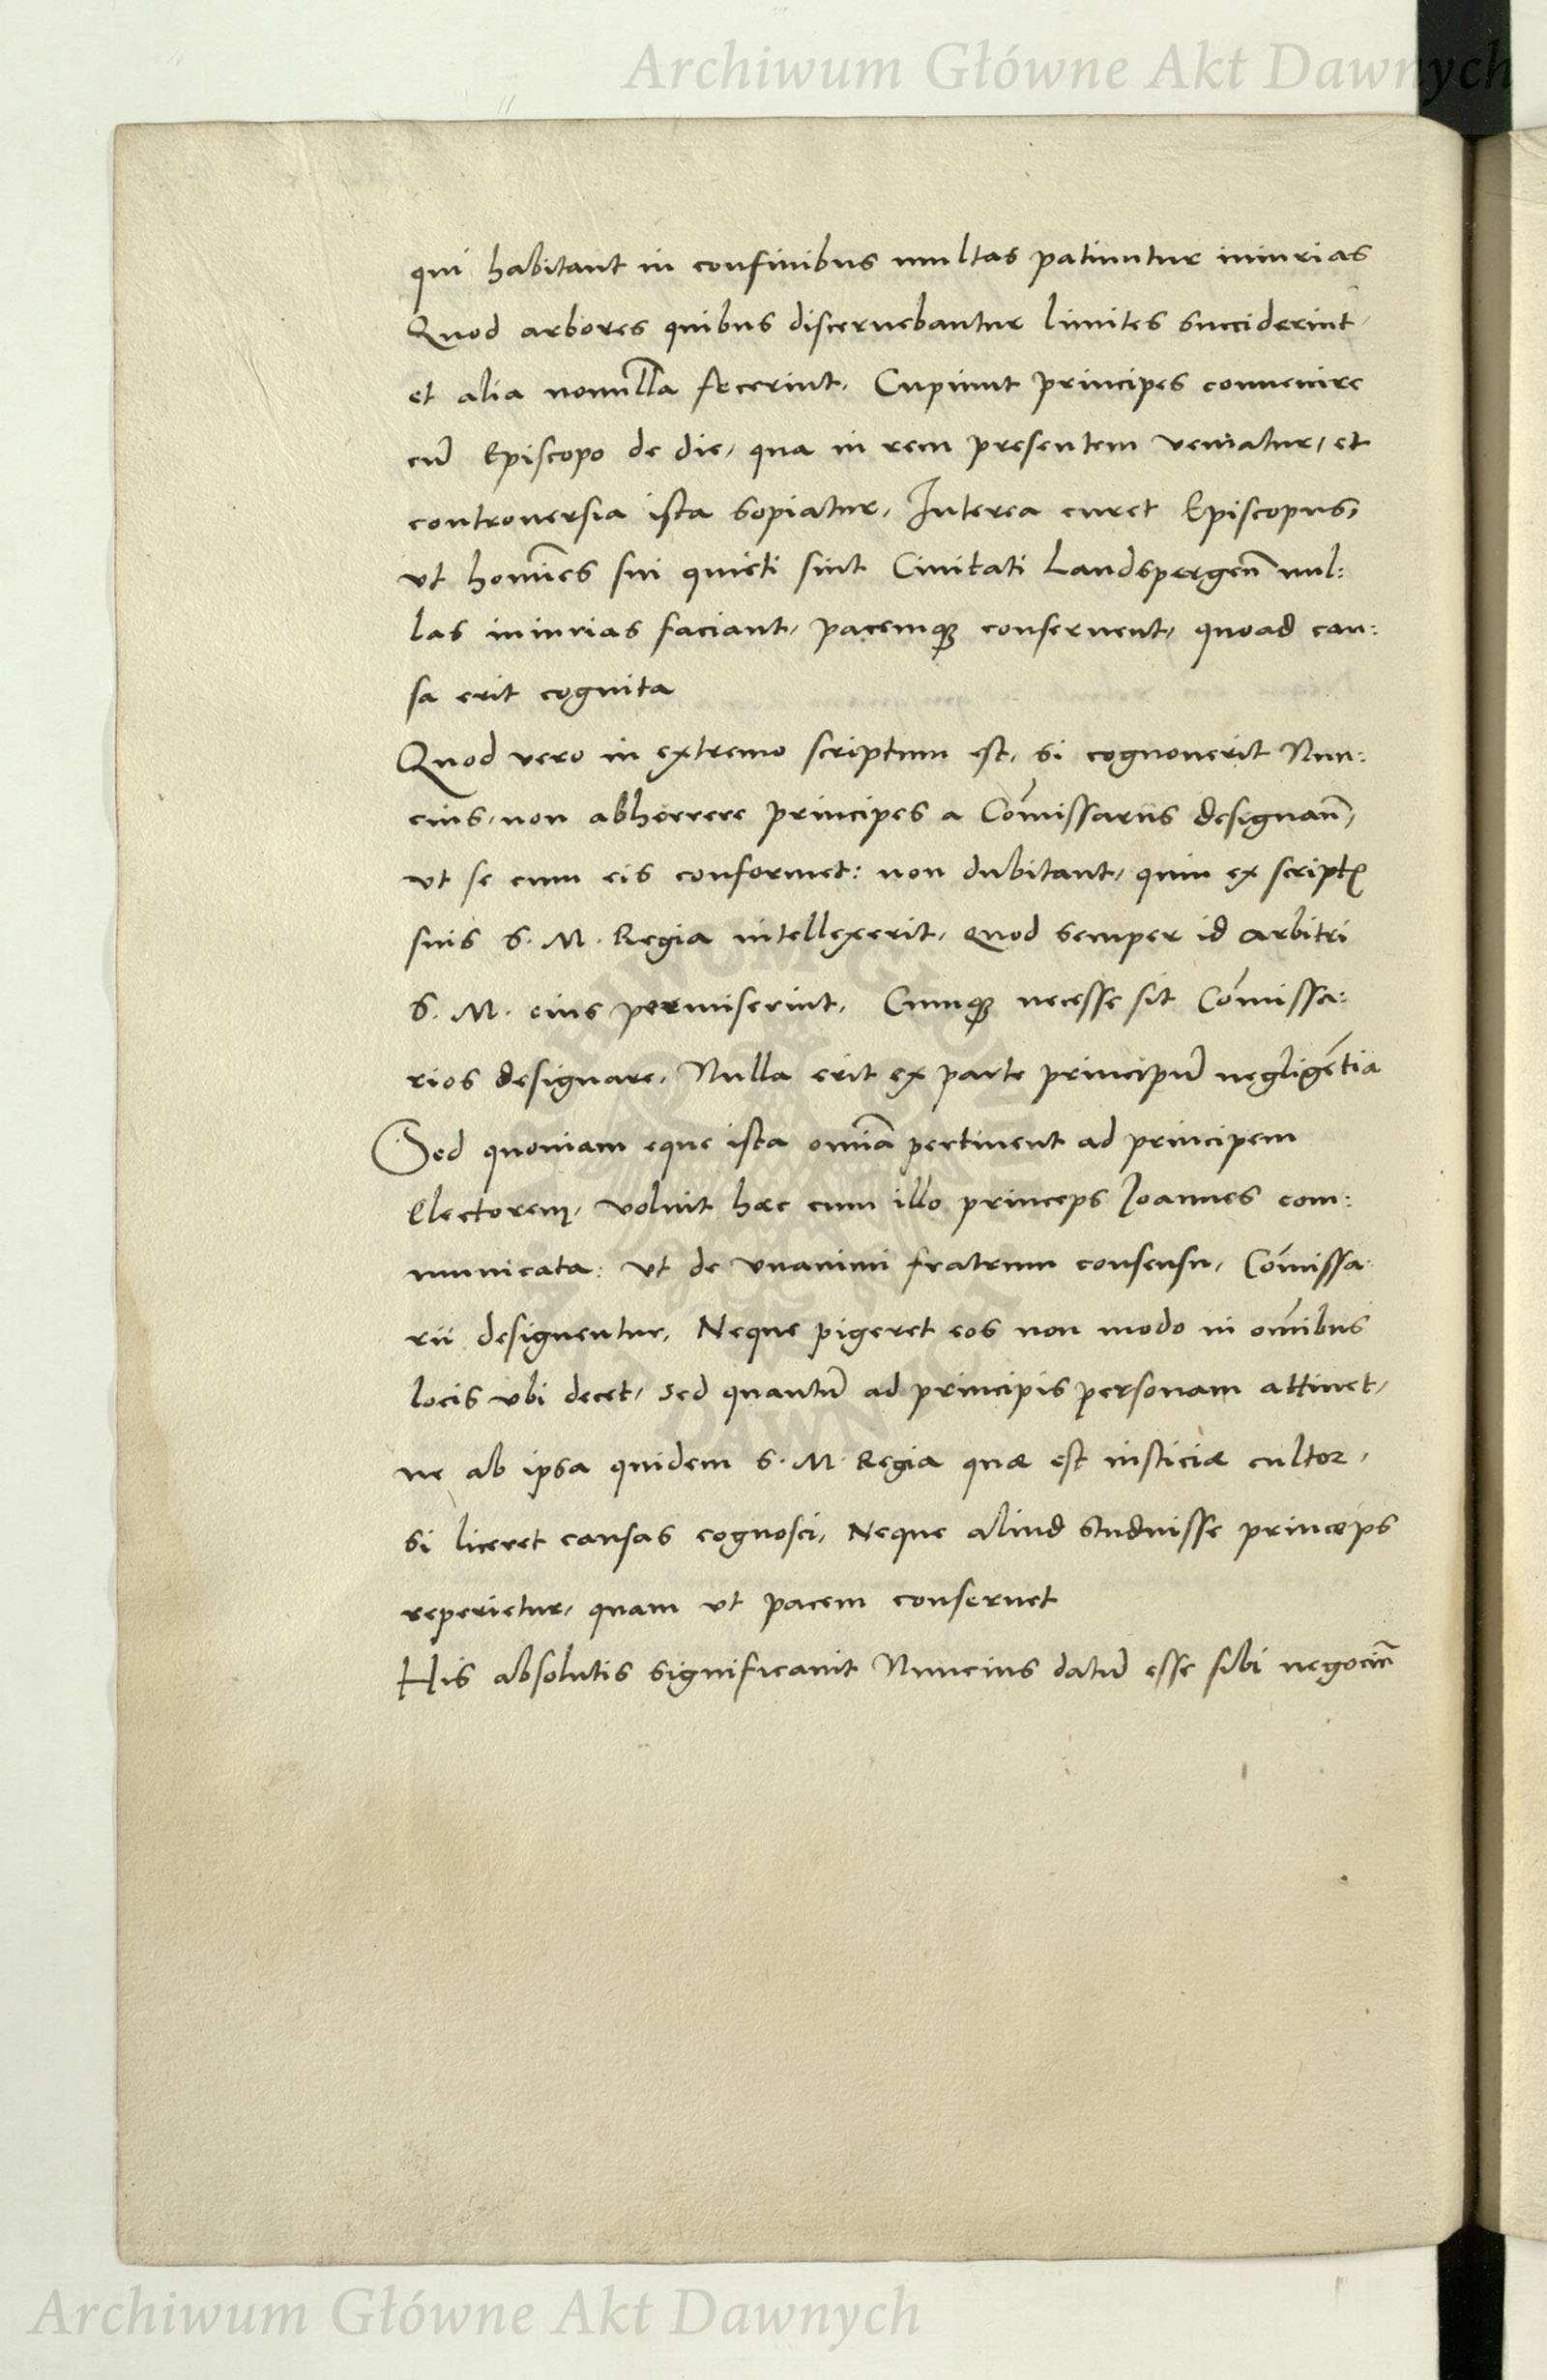 Archiwum Główne Akt Dawnych
qui habitant in confinibus multas patiuntur iniurias
Quod arbores quibus discernebantur limites succiderint,
et alia nonnulla fecerint. Cupiunt principes conuenire
cū Episcopo de die, qua in rem presentem veniatur, et
controuersia ista sopiatur, Interea curet Episcopus,
vt homīes sui quieti sint Ciuitati Landspergeñ nul:
las iniurias faciant, pacemqꝫ conseruent, quoad cau:
sa erit cognita
Quod vero in extremo scriptum est, si cognouerit Nun:
cius, non abhorrere principes a Cōmissariis designañ,
vt se cum eis conformet: non dubitant, quin ex scriptꝭ
suis S. M. Regia intellexerit, quod semper id arbitri
S. M. eius permiserint. Cumqꝫ necesse sit Cōmissa:
rios designare, Nulla erit ex parte principū negligētia
Sed quoniam eque ista omīa pertinent ad principem
Electorem, voluit hæc cum illo princeps Joannes com:
municata: vt de vnanimi fratrum consensu, Cōmissa:
rii designentur. Neque pigeret eos non modo in omībus
locis vbi decet, sed quantū ad principis personam attinet,
ne ab ipsa quidem S. M. Regia quæ est iusticiæ cultor,
si liceret causas cognosci, Neque aliud studuisse princeps
reperietur, quam vt pacem conseruet
His absolutis significauit Nuncius datū esse sibi negociū
Archiwum Główne Akt Dawnych